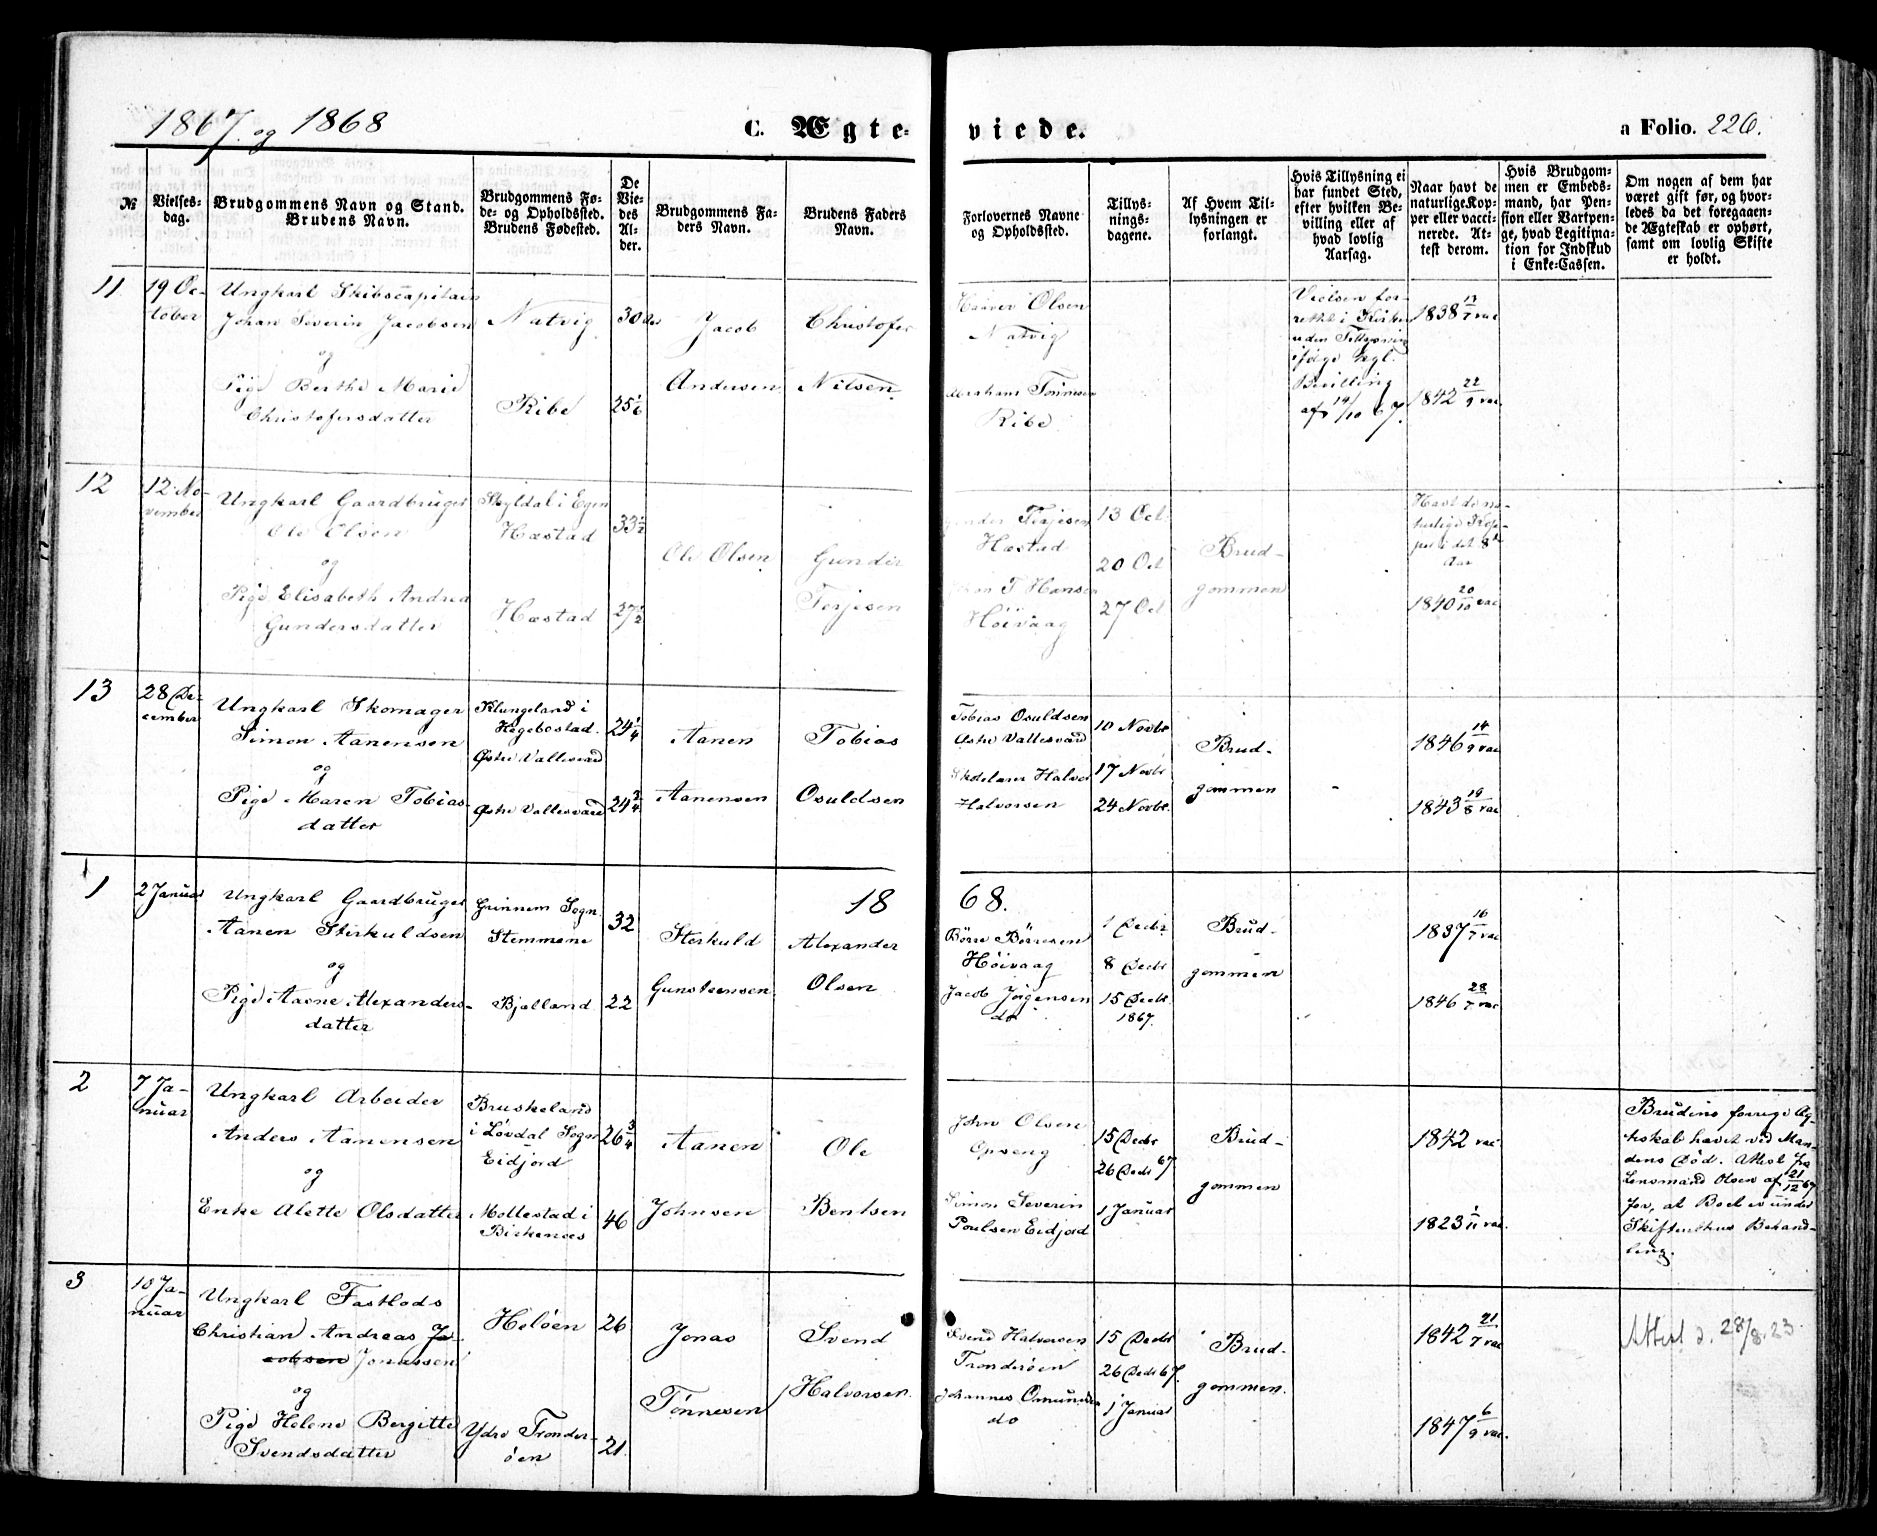 1867 og 1868
C. Ægte-
viede.
a Folio. 226.
№
Vielses-
dag.
Brudgommens Navn og Stand.
Brudens Navn.
Brudgommens Fø-
de- og Opholdsted.
Brudens Fødested.
De
Vie-
des
Al-
der.
Brudgommens Fa-
ders Navn.
Brudens Faders
Navn.
Forlovernes Navne
og Opholdsted.
Tillys-
nings-
dagene.
Af Hvem Til-
lysningen er
forlangt.
Hvis Tillysning ei
har fundet Sted,
efter hvilken Be-
villing eller af
hvad lovlig
Aarsag.
Naar havt de
naturlige Kop-
per eller vacci-
nerede. At-
test derom.
Hvis Brudgom-
men er Embeds-
mand, har Pen-
sion eller Vartpen-
ge, hvad Legitima-
tion for Indskud
i Enke-Cassen.
Om nogen af dem har
været gift før, og hvor-
ledes da det foregaaen-
de Ægteskab er ophørt,
samt om lovlig Skifte
er holdt.
11
19 Oc-
tober
Ungkarl Skibscapitain
Johan Severin Jacobsen
og
Pige Berthe Marie
Christofersdatter
Natvig
Ribe
30
25 1/6
Jacob
Andersen
Christofer
Nilsen
Haaver Olsen
Natvig
Abraham Tønnesen
Ribe
Vielsen for-
rettet i Kirken
uden Tillysning
ifølge kgl.
Bevilling
af 14/10 67.
1838 13/7 vac
1842 22/9 vac
12
12 No-
vember
Ungkarl Gaardbruger
Ole Olsen
og
Pige Elisabeth Andrea
Gundersdatter
Skyldal i Egen
Hæstad
Hæstad
33 1/2
27 1/2
Ole Olsen
Gunder
Terjesen
Gunder Terjesen
Hæstad
T Hansen
Höivaag
13 Oct
20 Oct
27 Oct
Brud-
gommen
Havt de na-
turlige Kop-
per i det 8de
Aar
1840 20/10 vac
13
28 De-
cember
Ungkarl Skomager
Simon Aanensen
og
Pige Maren Tobias-
datter
Klungeland i
Hegebostad.
Østre Vallesværd
Østre Vallesværd
24 1/4
24 3/4
Aanen
Aanensen
Tobias
Osuldsen
Tobias Osuldsen
Østre Vallesværd
Skolelærer Halvor
Halvorsen
10 Novbr
17 Novbr
24 Novbr.
Brud-
gommen
1846 14/9 vac
1843 19/8 vac
18
68.
1
2 Januar
Ungkarl Gaardbruger
Aanen Sterkuldsen
og
Pige Aasne Alexanders-
datter
Grinnem Sogn
Stemmene
Bjelland
32
22
Sterkuld
Gunsteensen
Alexander
Olsen
Börre Börresen
Höivaag
Jacob Jørgensen
do
1 Decbr
8 Decbr
15 Decbr
1867.
Brud-
gommen
1837 16/7 vac
1846 28/7 vac
2
7 Ja-
nuar
Ungkarl Arbeider
Anders Aanensen
og
Enke Alette Olsdatter
Bruskeland
i Løvdal Sogn
Eidjord
Mollestad i
Birkenes
26 3/4
46
Aanen
Johnsen
Ole
Bentsen
John Olsen
Opveng
Simon Severin
Poulsen Eidjord
15 Decbr
26 Decbr 67
1 Januar
Brud-
gommen
1842 vac
1823 1/11 vac.
Brudens forrige Æg-
teskab hævet ved Man-
dens Død. Attest fra
Lensmand Olsen af 21/12 67
for, at Boet er under
Skifterettens Behand-
ling.
3
10 Ja-
nuar
Ungkarl Fastlods
Christian Andreas Ja-
cobsen Jonassen
og
Pige Helene Bergitte
Svendsdatter
Helöen
Ydre Tronder-
öen
26
21
Jonas
Tönnesen
Svend
Halvorsen
Svend Halvorsen
Tronderöen
Johannes Omundsen
do
15 Decbr
26 Decbr 67.
1 Januar
Brud-
gommen.
1842 21/7 vac
1847 6/9 vac.
Attest d. 28/8.23.